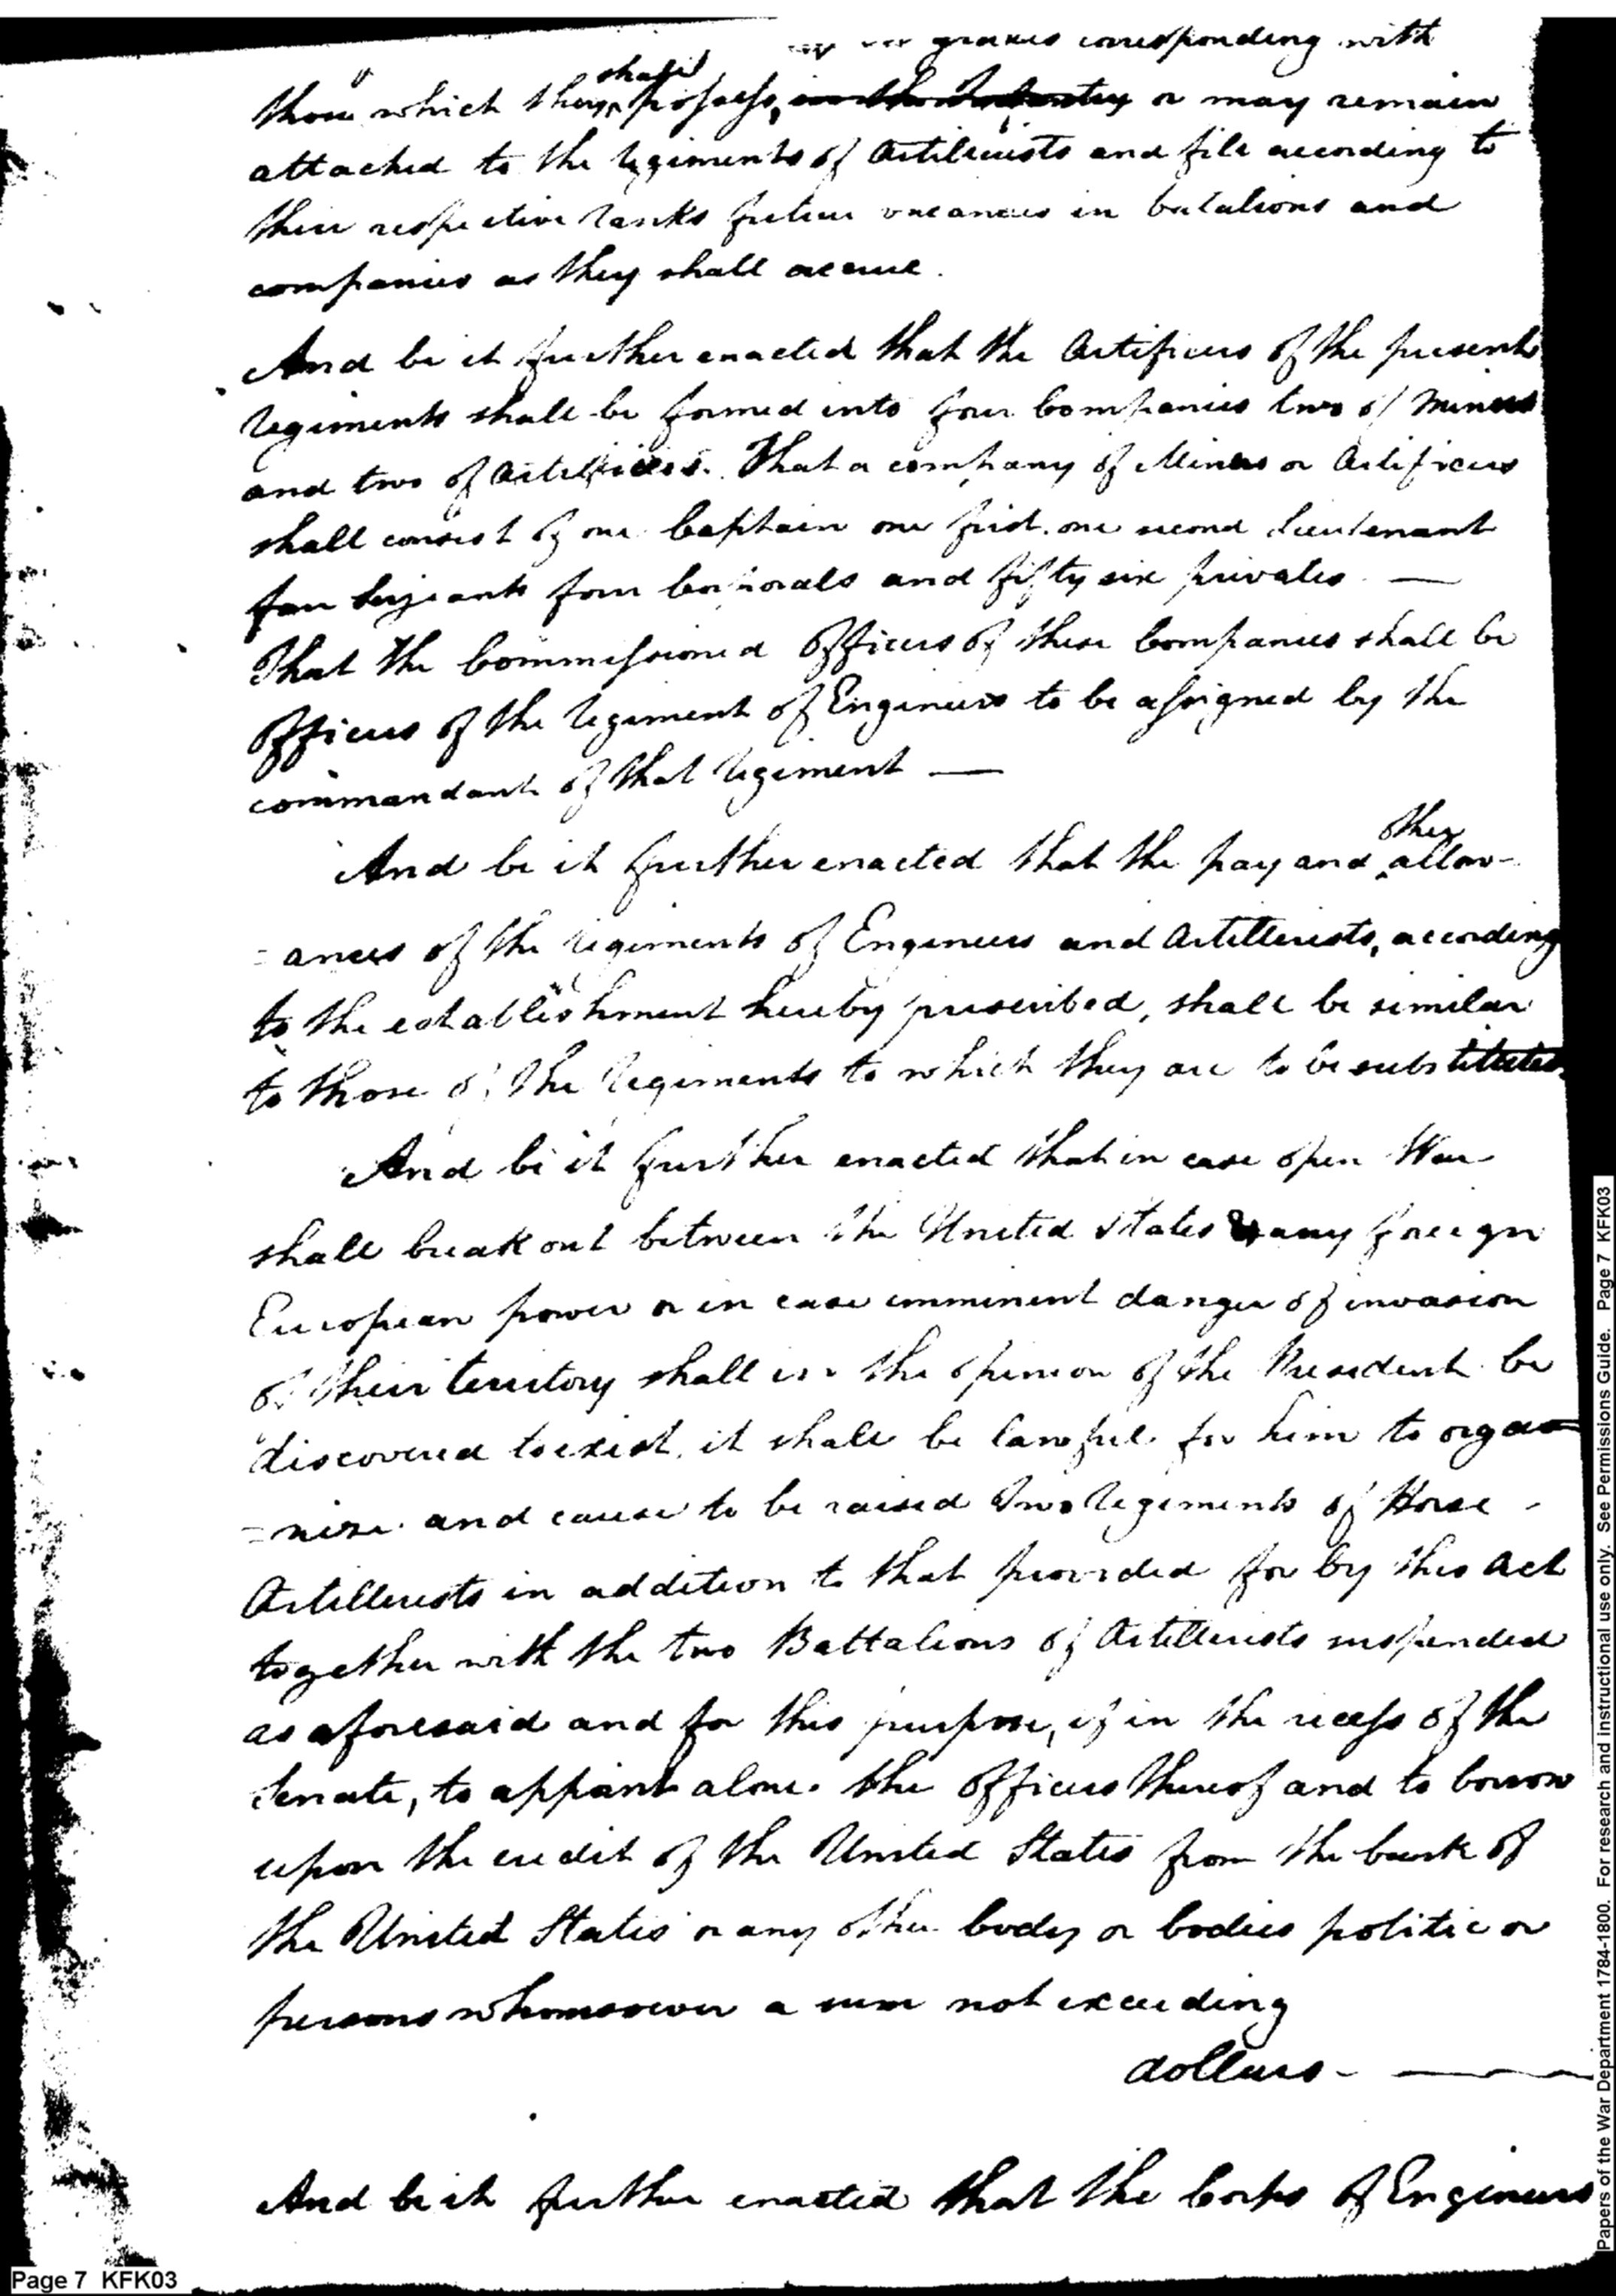 grades corresponding with
shall
those which they possess, or may remain
attached to the regiments of Artillerists and fill according to
their respective ranks future vacancies in batalions and
companies as they shall accrue.
And be it further enacted that the Artificers of the present
regiments shall be formed into four Companies two of Miners
and two of Artificers. That a company of Miners or Artificers
shall consist of one Captain one first one second lieutenant
four Serjeants four Corporals and fifty six privates —
That the Commissioned Officers of these Companies shall be
Officers of the regiment of Engineers to be assigned by the
commandant of that regiment —
other
And be it further enacted that the pay and allow-
=ances of the regiments of Engineers and Artillerists, according
to the establishment hereby prescribed, shall be similar
to those of the regiments to which they are to be substituted.
And be it further enacted that in case open War
shall break out between the United States & any foreign
European power or in case imminent danger of invasion
of their territory shall in the opinion of the President be
discovered to exist, it shall be lawful for him to orga
=nise and cause to be raised two regiments of Horse -
Artillerists in addition to that provided for by this Act
together with the two Battalions of Artillerists suspended
as aforesaid and for this purpose, if in the recess of the
Senate, to appoint alone the Officers thereof and to borrow
upon the credit of the United States from the bank of
the United States or any other body or bodies politic or
persons whomsoever a sum not exceeding
dollars - —
And be it further enacted that the Corps of Engineers
Page 7 KFK03
Papers of the War Department 1784-1800. For research and instructional use only. See Permissions Guide. Page 7 KFK03